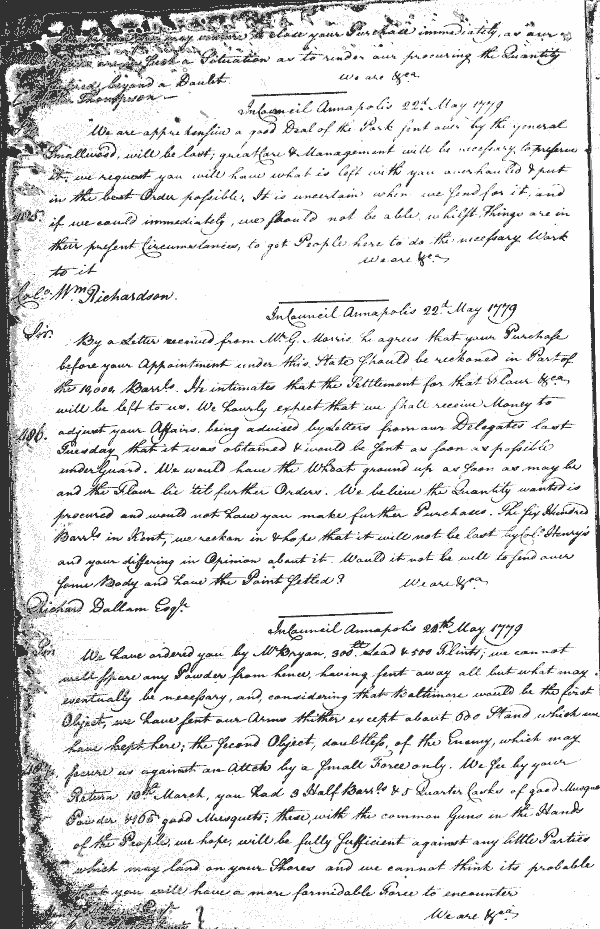 to close your Purchase immediately, as our
such a Situation as to render our procuring the Quantity
beyond a Doubt.      We are &ca
Thompson
In Council Annapolis 22d May 1779
We are apprehensive a good Deal of the Pork sent over by the general
Smallwood, will be lost, great Care & Management will be necessary to preserve
it, we request you will have what is left with you overhauled & put
in the best Order possible, It is uncertain when we send for it, and
485. if we could immediately, we should not be able, whilst Things are in
their present Circumstances, to get People here to do the necessary Work
to it      We are &ca
Colo. Wm Richardson.
In Council Annapolis 22d May 1779
Sir.
By a Letter received from Mr G. Morris, he agrees that your Purchase
before your Appointment under this State should be reckoned in Part of
the 10,000 Barrls. He intimates that the Settlement for that Flour &ca
will be left to us. We hourly expect that we shall receive Money to
486. adjust your Affairs, being advised by Letters from our Delegates last
Tuesday that it was obtained & would be sent as soon as possible
under Guard. We would have the Wheat ground up as soon as may be
and the Flour lie 'til further Orders. We believe the Quantity wanted is
procured and would not have you make further Purchases. The six Hundred
Barrls in Kent, we reckon in & hope that it will not be lost by Colo. Henry's
and your differing in Opinion about it. Would it not be well to send over
some Body and have the Point settled?      We are &ca
Richard Dallam Esqr.
In Council Annapolis 24th May 1779
Sir
We have ordered you by Mr Bryan, 300lb Lead & 500 Flints; we cannot
well spare any Powder from hence, having sent away all but what may
eventually be necessary, and, considering that Baltimore would be the first
Object, we have sent our Arms thither except about 600 Stand, which we
have kept here, the Second Object, doubtless, of the Enemy, which may
487. secure us against an Attck by a small Force only. We see by your
Return 13th March, you had 3 Half Barrls & 5 Quarter Casks of good Musqt
Powder & 165 good Musquets; these, with the common Guns in the Hands
of the People, we hope, will be fully sufficient against any little Parties
which may land on your Shores and we cannot think its probable
that you will have a more formidable Force to encounter
We are &ca